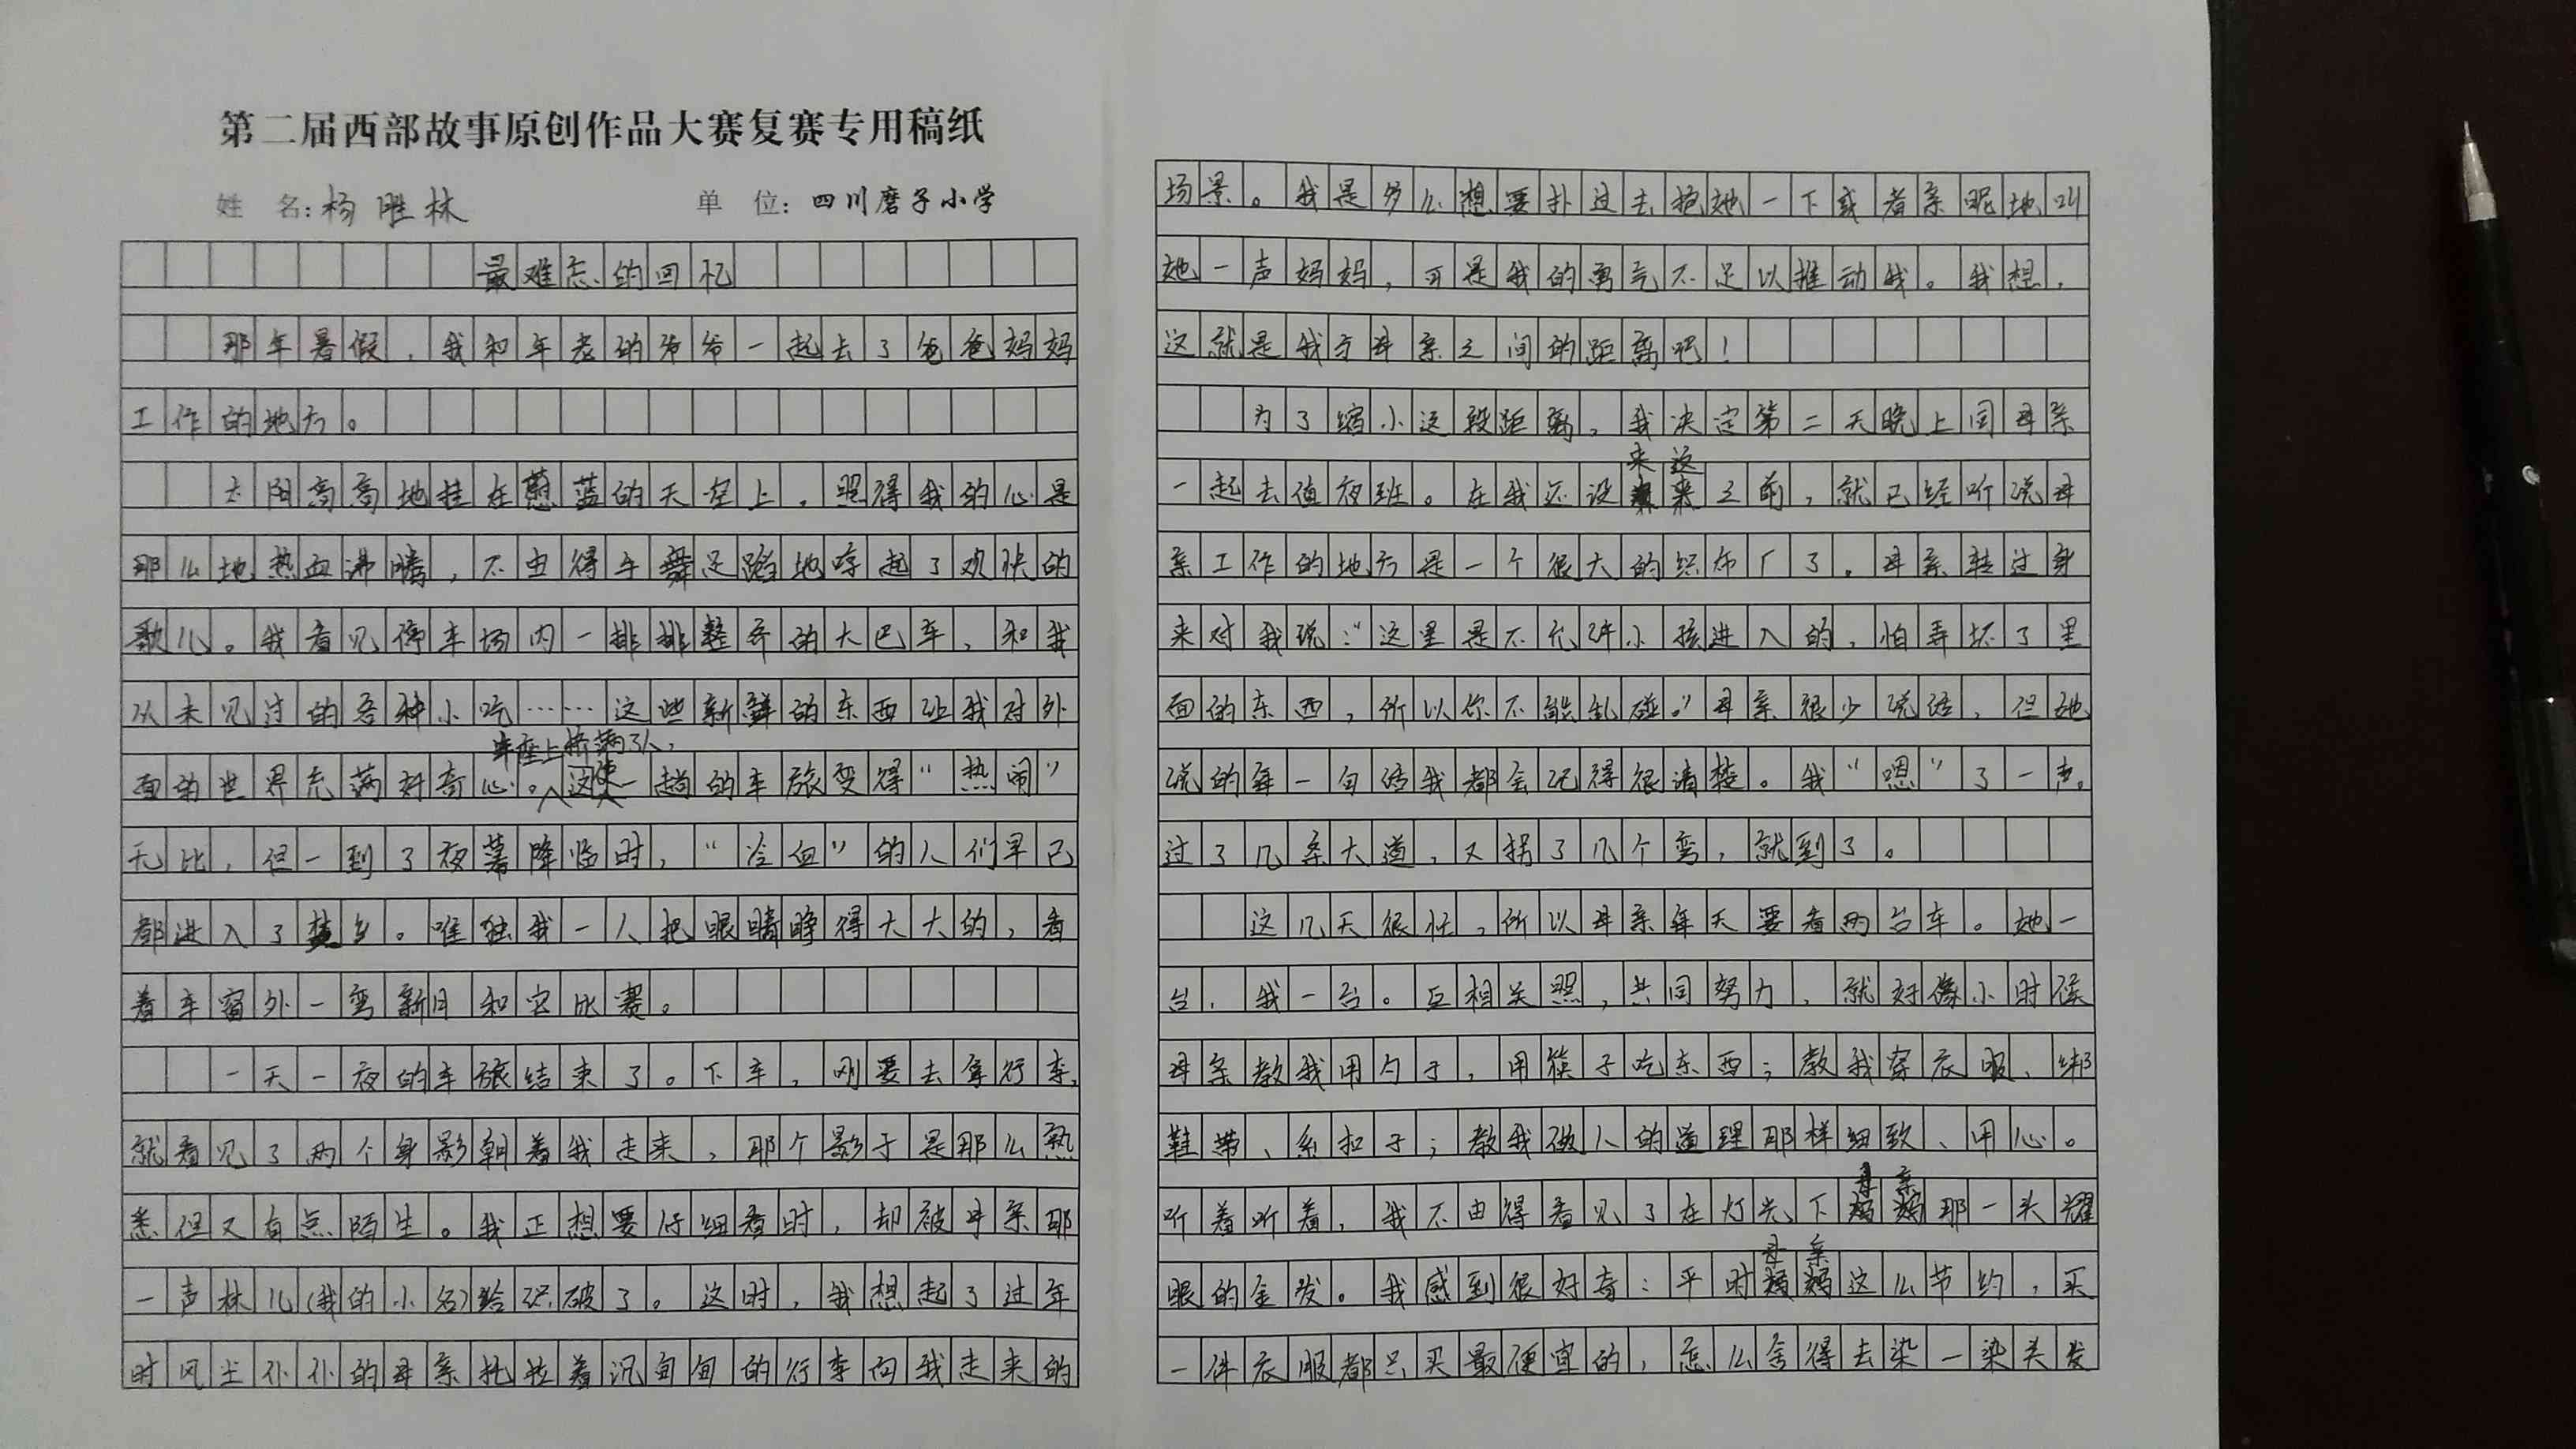 第二届西部故事原创作品大赛复赛专用稿纸
姓 名：杨胜林 单 位：四川磨子小学
最难忘的回忆
那年暑假，我和年老的爷爷一起去了爸爸妈妈
工作的地方。
太阳高高地挂在蔚蓝的天空上，照得我的心是
那么地热血沸腾，不由得手舞足蹈地哼起了欢快的
歌儿。我看见停车场内一排排整齐的大巴车，和我
从未见过的各种小吃……这些新鲜的东西让我对外
面的世界充满好奇心。车座上挤满了人，这使一趟的车旅变得“热闹”
无比，但一到了夜幕降临时，“冷血”的人们早已
都进入了梦乡。唯独我一人把眼睛睁得大大的，看
着车窗外一弯新月和它比赛。
一天一夜的车旅结束了。下车，刚要去拿行李，
就看见了两个身影朝着我走来，那个影子是那么熟
悉但又有点陌生。我正想要仔细看时，却被母亲那
一声林儿（我的小名）给识破了。这时，我想起了过年
时风尘仆仆的母亲托拉着沉甸甸的行李向我走来的
场景。我是多么想要扑过去抱她一下或者亲昵地叫
她一声妈妈，可是我的勇气不足以推动我。我想，
这就是我与母亲之间的距离吧！
为了缩小这段距离，我决定第二天晚上同母亲
一起去值夜班。在我还没来这之前，就已经听说母
亲工作的地方是一个很大的织布厂了。母亲转过身
来对我说：“这里是不允许小孩进入的，怕弄坏了里
面的东西，所以你不能乱碰。”母亲很少说话，但她
说的每一句话我都会记得很清楚。我“嗯”了一声。
过了几条大道，又拐了几个弯，就到了。
这几天很忙，所以母亲每天要看两台车。她一
台，我一台。互相关照，共同努力，就好像小时候
母亲教我用勺子，用筷子吃东西；教我穿衣服、绑
鞋带、系扣子；教我做人的道理那样细致、用心。
听着听着，我不由得看见了在灯光下母亲那一头耀
眼的金发。我感到很好奇：平时母亲这么节约，买
一件衣服都只买最便宜的，怎么舍得去染一染头发